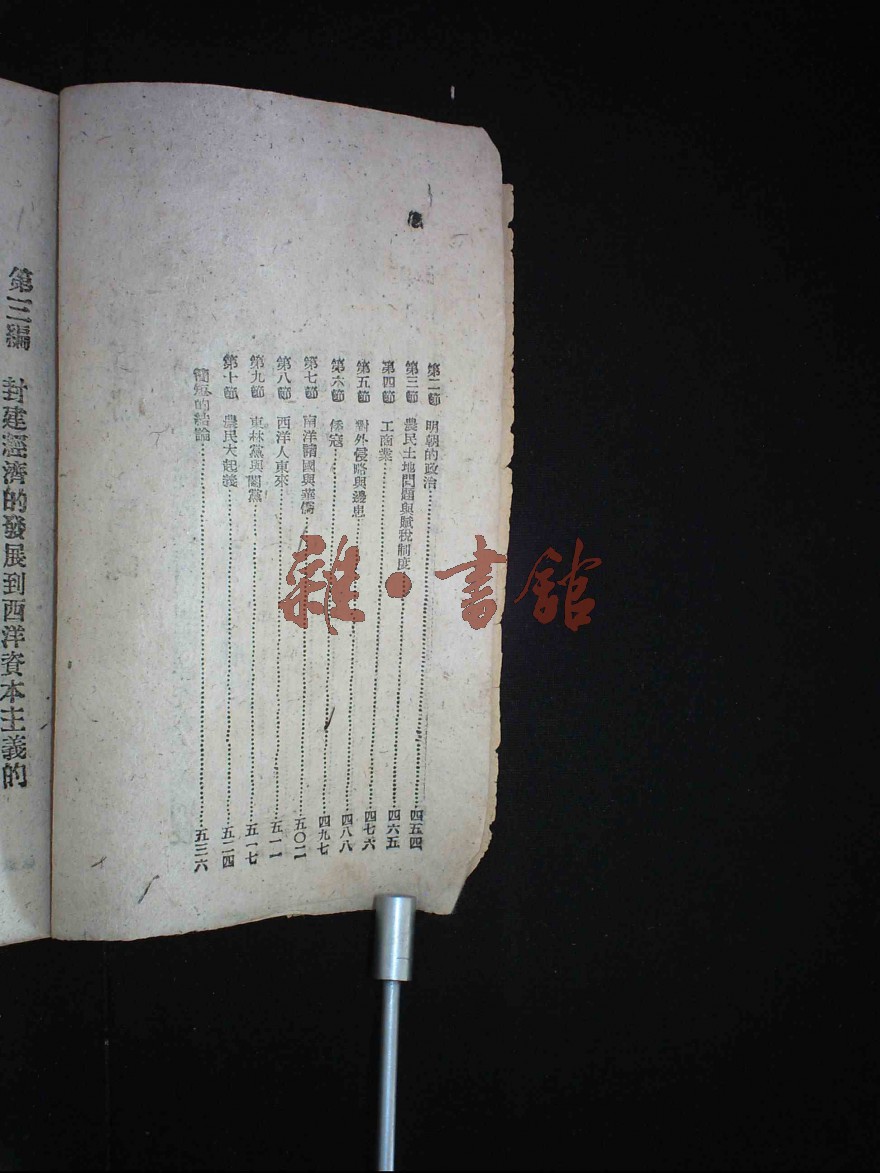 第二節　明朝的政治……四五四
第三節　農民土地問題與賦稅制度……四六五
第四節　工商業……四七六
第五節　對外侵略與邊患……四八八
第六節　倭寇……四九七
第七節　南洋諸國與華僑……五〇二
第八節　西洋人東來……五一一
第九節　東林黨與閹黨……五一七
第十節　農民大起義……五二四
簡短的結論……五三六
第三編　封建經濟的發展到西洋資本主義的
雜·書館